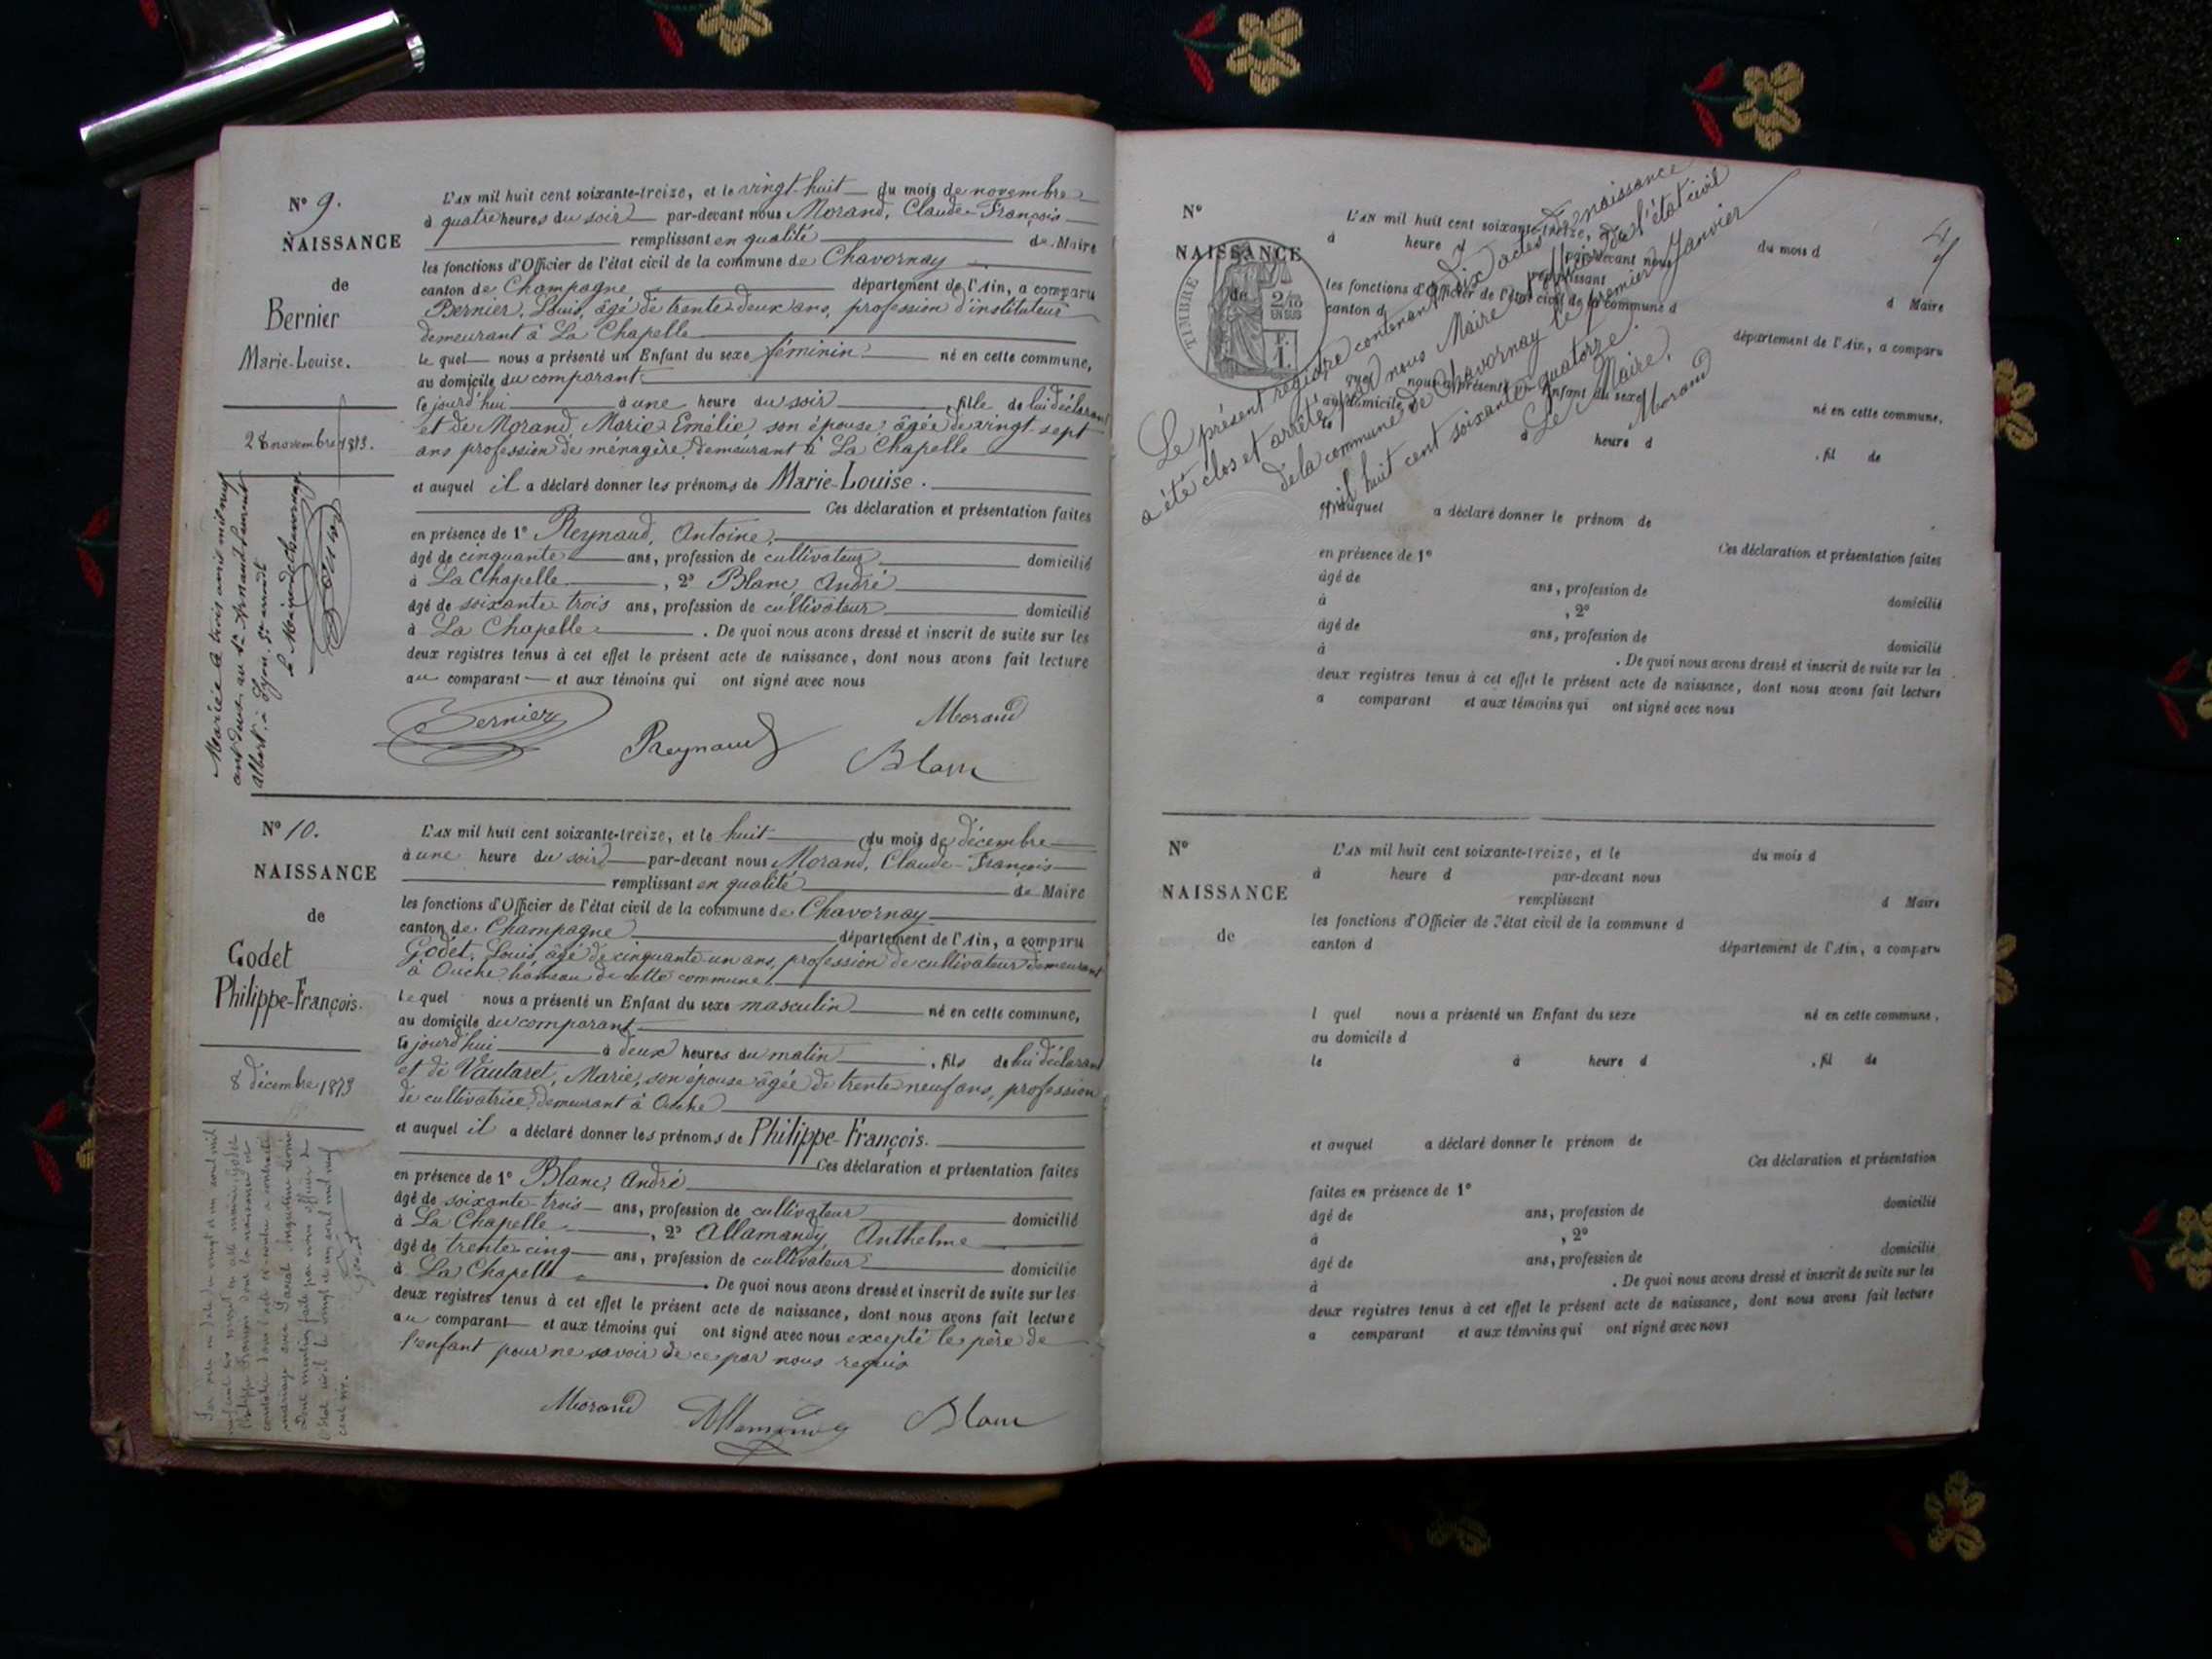 N° 9.
NAISSANCE
de
Bernier
Marie-Louise.
28 novembre 1873.
Mariée le trois avril mil neuf
cent deux au
Albert à Lyon, 5e arrondt
Le Maire de Chavornay
L'AN mil huit cent soixante-treize, et le vingt-huit du mois de novembre
à quatre heures du soir par-devant nous Morand, Claude-François
remplissant en qualité de Maire
les fonctions d'Officier de l'état civil de la commune de Chavornay
canton de Champagne département de l'Ain, a comparu
Bernier, Louis, âgé de trente-deux ans, profession d'instituteur
demeurant à La Chapelle
le quel nous a présenté un Enfant du sexe féminin né en cette commune,
au domicile du comparant
ce jourd'hui à une heure du soir, fille de lui déclarant
et de Morand, Marie-Emélie son épouse, âgée de vingt-sept
ans profession de ménagère, demeurant à La Chapelle
et auquel il a déclaré donner les prénoms de Marie-Louise.
Ces déclaration et présentation faites
en présence de 1° Reynaud, Antoine,
âgé de cinquante ans, profession de cultivateur domicilié
à La Chapelle, 2° Blanc, André
âgé de soixante-trois ans, profession de cultivateur domicilié
à La Chapelle. De quoi nous avons dressé et inscrit de suite sur les
deux registres tenus à cet effet le présent acte de naissance, dont nous avons fait lecture
au comparant et aux témoins qui ont signé avec nous
Bernier Reynaud Morand
Blanc
N° 10.
NAISSANCE
de
Godet
Philippe-François.
8 décembre 1873
L'AN mil huit cent soixante-treize, et le huit du mois de décembre
à une heure du soir par-devant nous Morand, Claude-François
remplissant en qualité de Maire
les fonctions d'Officier de l'état civil de la commune de Chavornay
canton de Champagne département de l'Ain, a comparu
Godet, Louis, âgé de cinquante-un ans, profession de cultivateur demeurant
à Ouche hameau de cette commune
le quel nous a présenté un Enfant du sexe masculin né en cette commune,
au domicile du comparant
ce jourd'hui à deux heures du matin, fils de lui déclarant
et de Vautaret, Marie, son épouse âgée de trente-neuf ans, profession
de cultivatrice, demeurant à Ouche
et auquel il a déclaré donner les prénoms de Philippe-François.
Ces déclaration et présentation faites
en présence de 1° Blanc, André
âgé de soixante-trois ans, profession de cultivateur domicilié
à La Chapelle, 2° Allamandy, Anthelme
âgé de trente-cinq ans, profession de cultivateur domicilié
à La Chapelle. De quoi nous avons dressé et inscrit de suite sur les
deux registres tenus à cet effet le présent acte de naissance, dont nous avons fait lecture
au comparant et aux témoins qui ont signé avec nous excepté le père de
l'enfant pour ne savoir de ce par nous requis
Morand Allamandy Blanc
4
N°
NAISSANCE
de
TIMBRE
2/10
EN SUS
L'AN mil huit cent soixante-treize, du mois d
à heure d par-devant nous
remplissant d Maire
les fonctions d'Officier de l'état civil de la commune d
canton d département de l'Ain, a comparu
nous a présenté un Enfant du sexe né en cette commune,
au domicile d
à heure d , fil de
et auquel a déclaré donner le prénom de
Ces déclaration et présentation faites
en présence de 1°
âgé de ans, profession de domicilié
à , 2°
âgé de ans, profession de domicilié
à . De quoi nous avons dressé et inscrit de suite sur les
deux registres tenus à cet effet le présent acte de naissance, dont nous avons fait lecture
a comparant et aux témoins qui ont signé avec nous
Le présent registre contenant dix actes de naissance
a été clos et arrêté par nous Maire officier de l'état civil
de la commune de Chavornay le premier Janvier
mil huit cent soixante-quatorze.
Le Maire,
Morand
N°
NAISSANCE
de
L'AN mil huit cent soixante-treize, et le du mois d
à heure d par-devant nous
remplissant d Maire
les fonctions d'Officier de l'état civil de la commune d
canton d département de l'Ain, a comparu
l quel nous a présenté un Enfant du sexe né en cette commune,
au domicile d
le à heure d , fil de
et auquel a déclaré donner le prénom de
Ces déclaration et présentation
faites en présence de 1°
âgé de ans, profession de domicilié
à , 2°
âgé de ans, profession de domicilié
à . De quoi nous avons dressé et inscrit de suite sur les
deux registres tenus à cet effet le présent acte de naissance, dont nous avons fait lecture
a comparant et aux témoins qui ont signé avec nous